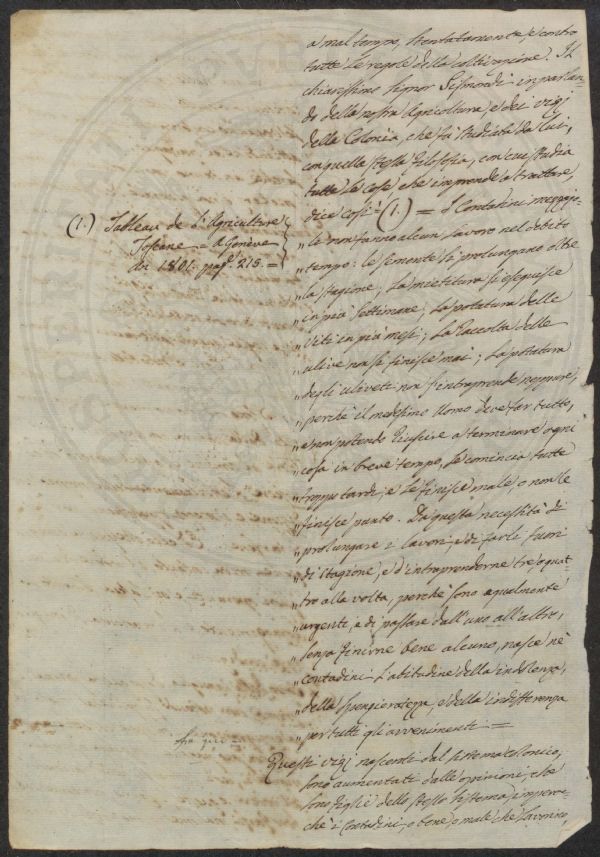 a mal tempo, stentatamente, e contro
tutte le regole della coltivazione. Il
chiarissimo Signor Sismondi in parlan-
do della nostra Agricoltura, e dei vizj
della Colonia, che hà studiate da lui,
con quella stessa Filosofia, con cui studia
tutte le cose che imprende a trattare,
dice così = (1.) = I Contadini mezzajo-
(1.) Tableau de l'Agriculture
Toscane = A Genève
an 1801. pag. 215. =
„ le non fanno alcun lavoro nel debito
„ tempo: le semente si prolungano oltre
„ la stagione, La mietitura si eseguisce
„ in più settimane, La potatura delle
„ Viti in più mesi; La Raccolta delle
„ ulive non si finisce mai; La potatura
„ degli uliveti non s'intraprende neppure,
„ perchè il medesimo Uomo deve far tutto,
„ e non potendo Riuscire a terminare ogni
„ cosa in breve tempo, Le comincia tutte
„ troppo tardi, e Le finisce male, o non le
„ finisce punto. Da questa necessità di
„ prolungare i lavori, e di farli fuori
„ di Stagione, e d'intraprenderne trè o quat-
„ tro alla volta, perchè sono egualmente
„ urgenti, e di passare dall'uno all'altro,
„ senza finirne bene alcuno, nasce nè
„ contadini L'abitudine della indolenza,
„ della Spensieratezza, e della indifferenza
„ per tutti gli avvenimenti =
fin qui =
Questi vizj nascenti dal sistema colonico,
sono aumentati dalle opinioni, che
son figlie dello stesso sistema, imperoc-
chè i Contadini, o bene, o male che lavorino,